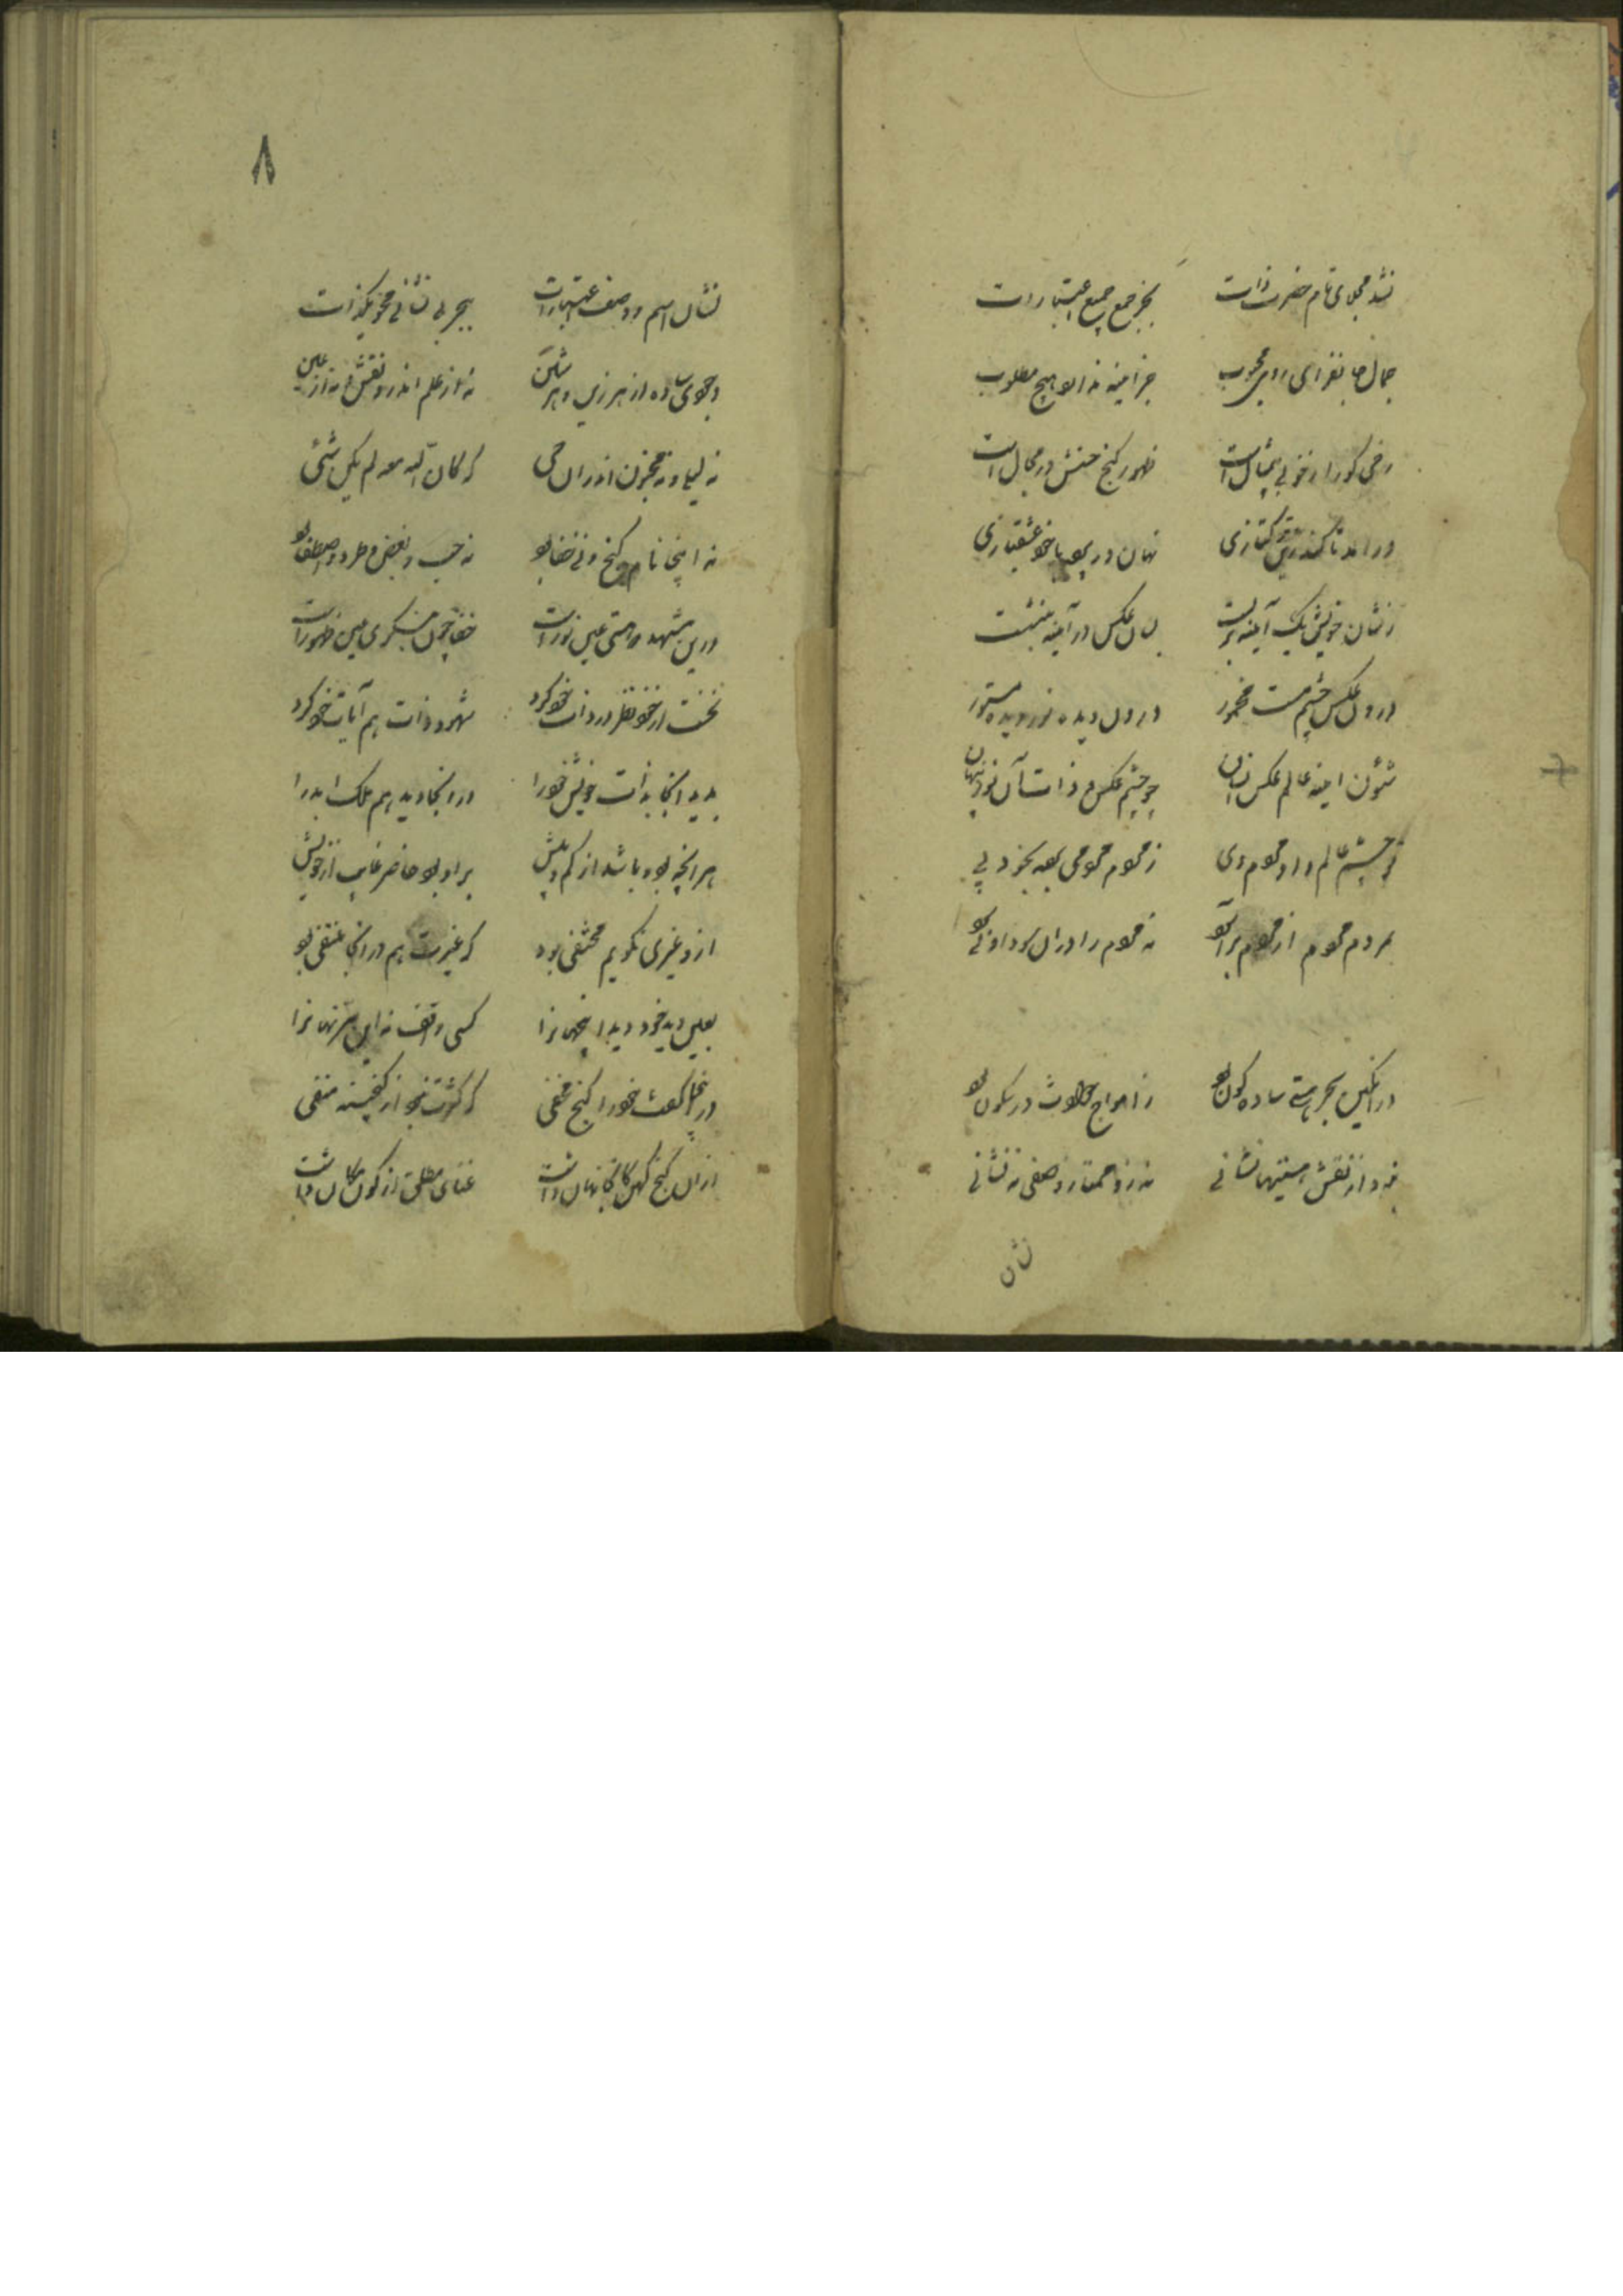 نشد مجلای تام حضرت ذات بجز جمع جمیع اعتبارات
جمال جانفزای روی محبوب جز آیینه نه از او هیچ مطلوب
رخی کورا ز خوبی بیمثال است ظهور کنج حسنش در مجال است
در آمد تا کند نهان در پی با خود عشقبازی
ز شان خویش یک آیینه بر بست بسان عکس در آیینه بنشست
درون عکس چشم مست مخمور درون دیده نور دیده مستور
شئون آیینه عالم عکس انسان چو چشم عکس ذات آن نور پنهان
چشم عالم و او مردم وی ز مردم مردمی بعد بجز وی
مردم مردم از مردم بر آن بود نه مردم را در آن بود او نمی بود
در آنکین بحر هستی ساده کون بود ز امواج حوادث در سکون بود
نبود از نقش هستیها نشانی نه زو ممتاز وصفی نه نشانی
نشان
۸
نشان اسم و وصف اعتبارات ببحر بی نشانی محو یکذات
وجودی ساده از هر زین و هر شین نه از علم اندرو نقش و نه از عین
نه لیلی و نه مجنون اندران حی که کان الله معه لم یکن شئی
نه اینجا نام کنج و نی خفا بود نه حب و بغض و طرد و اصطفا بود
درین مشهد که هستی عین نور است خفا چون بنگری عین ظهور است
نخست از خود نظر در ذات خود کرد شهود ذات هم آیات خود کرد
بدید آنجا بذات خویش خود را در آنجا دید هم ملک ابد را
هر آنچه بود و باشد از کم و بیش بر او بود حاضر غایب از خویش
ازو غیری نگویم مختفی بود که غیرت هم در آنجا منتفی بود
بعین دید خود دید این جهانرا کسی واقف نه این سر نهانرا
در اینجا گفت خود را کنج مخفی که کثرت بود از گنجینه منفی
از آن کنج کهن کانجا نهان داشت غنای مطلق از کون و مکان داشت